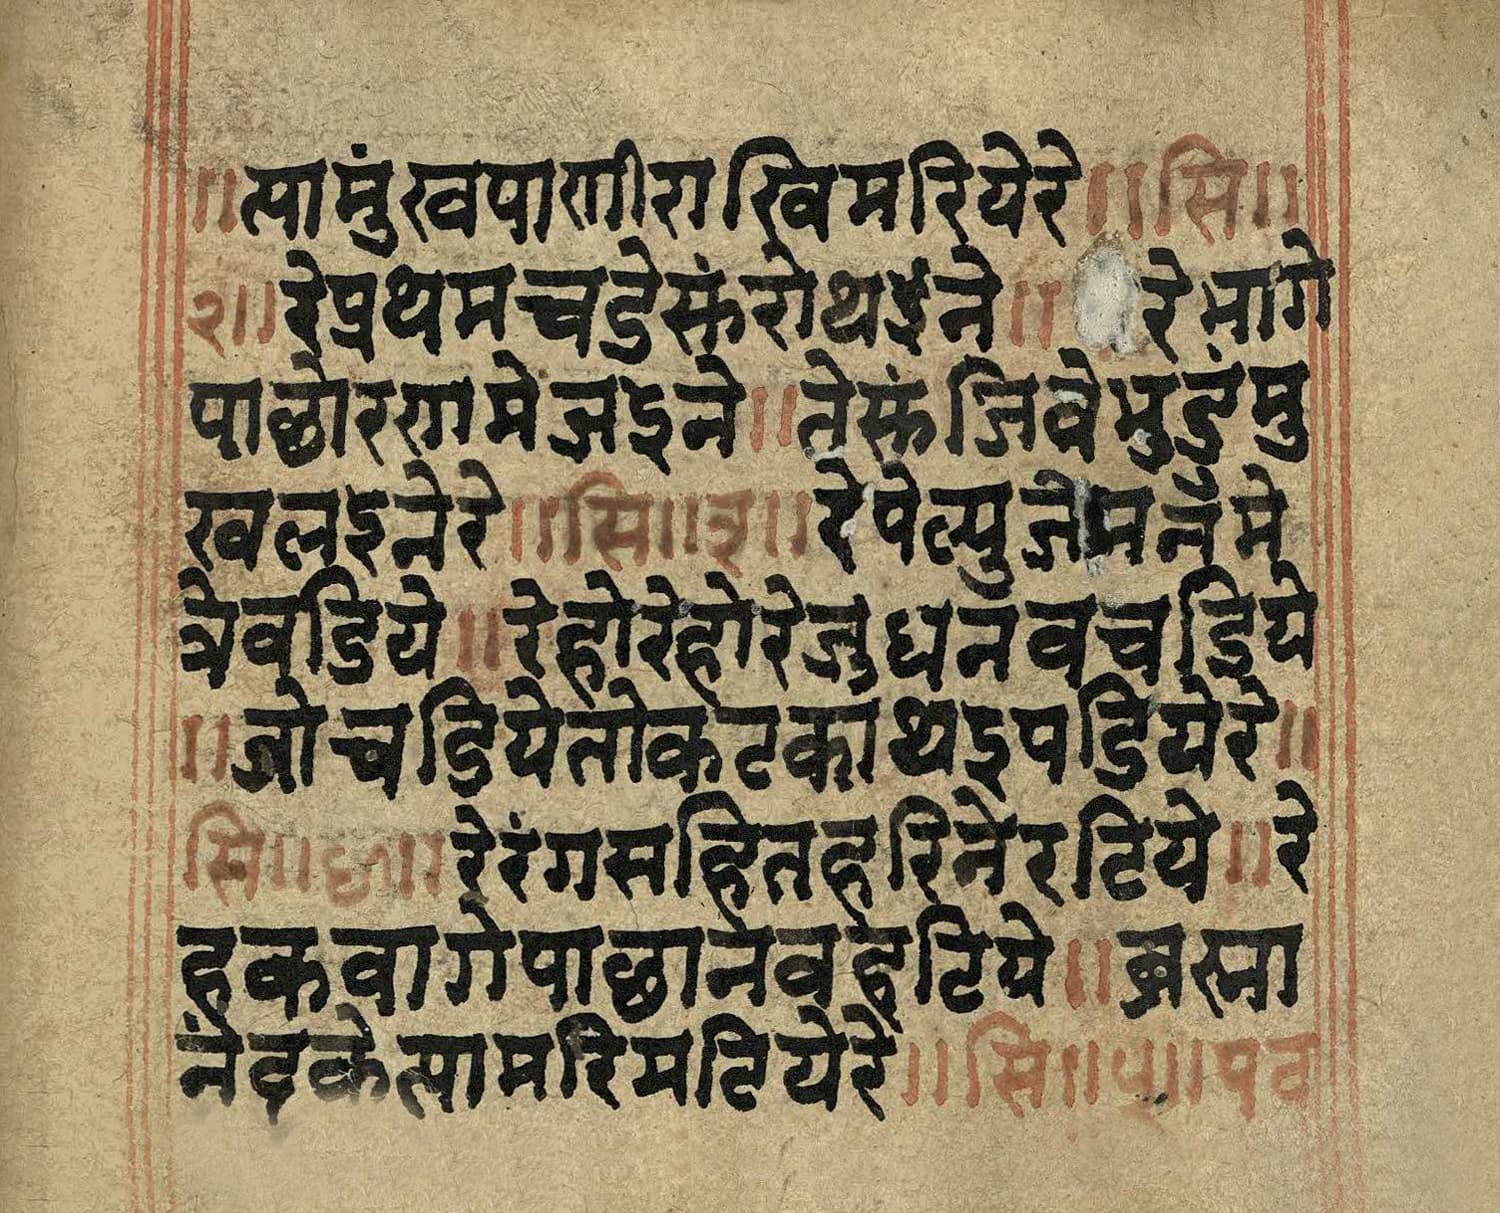 ॥त्यामुंखपाणीराखिमरियेरे॥सि॥
२॥रेप्रथमचडेसूंरोथइने॥ रेभागे
पाछोरणमेजइने॥तेसूंजिवेभुडुंमु
खलइनेरे॥सि॥३॥रेपेल्युजेमनंमे
त्रेवडिये॥रेहोरेहोरेजुधनवचडिये
॥जोचडियेतोकटकाथइपडियेरे॥
सि॥४॥रेरंगसहितहरिनेरटिये॥रे
हकवागेपाछानवहटिये॥ब्रह्मा
नंदकेत्यामरिमटियेरे॥सि॥५॥पद